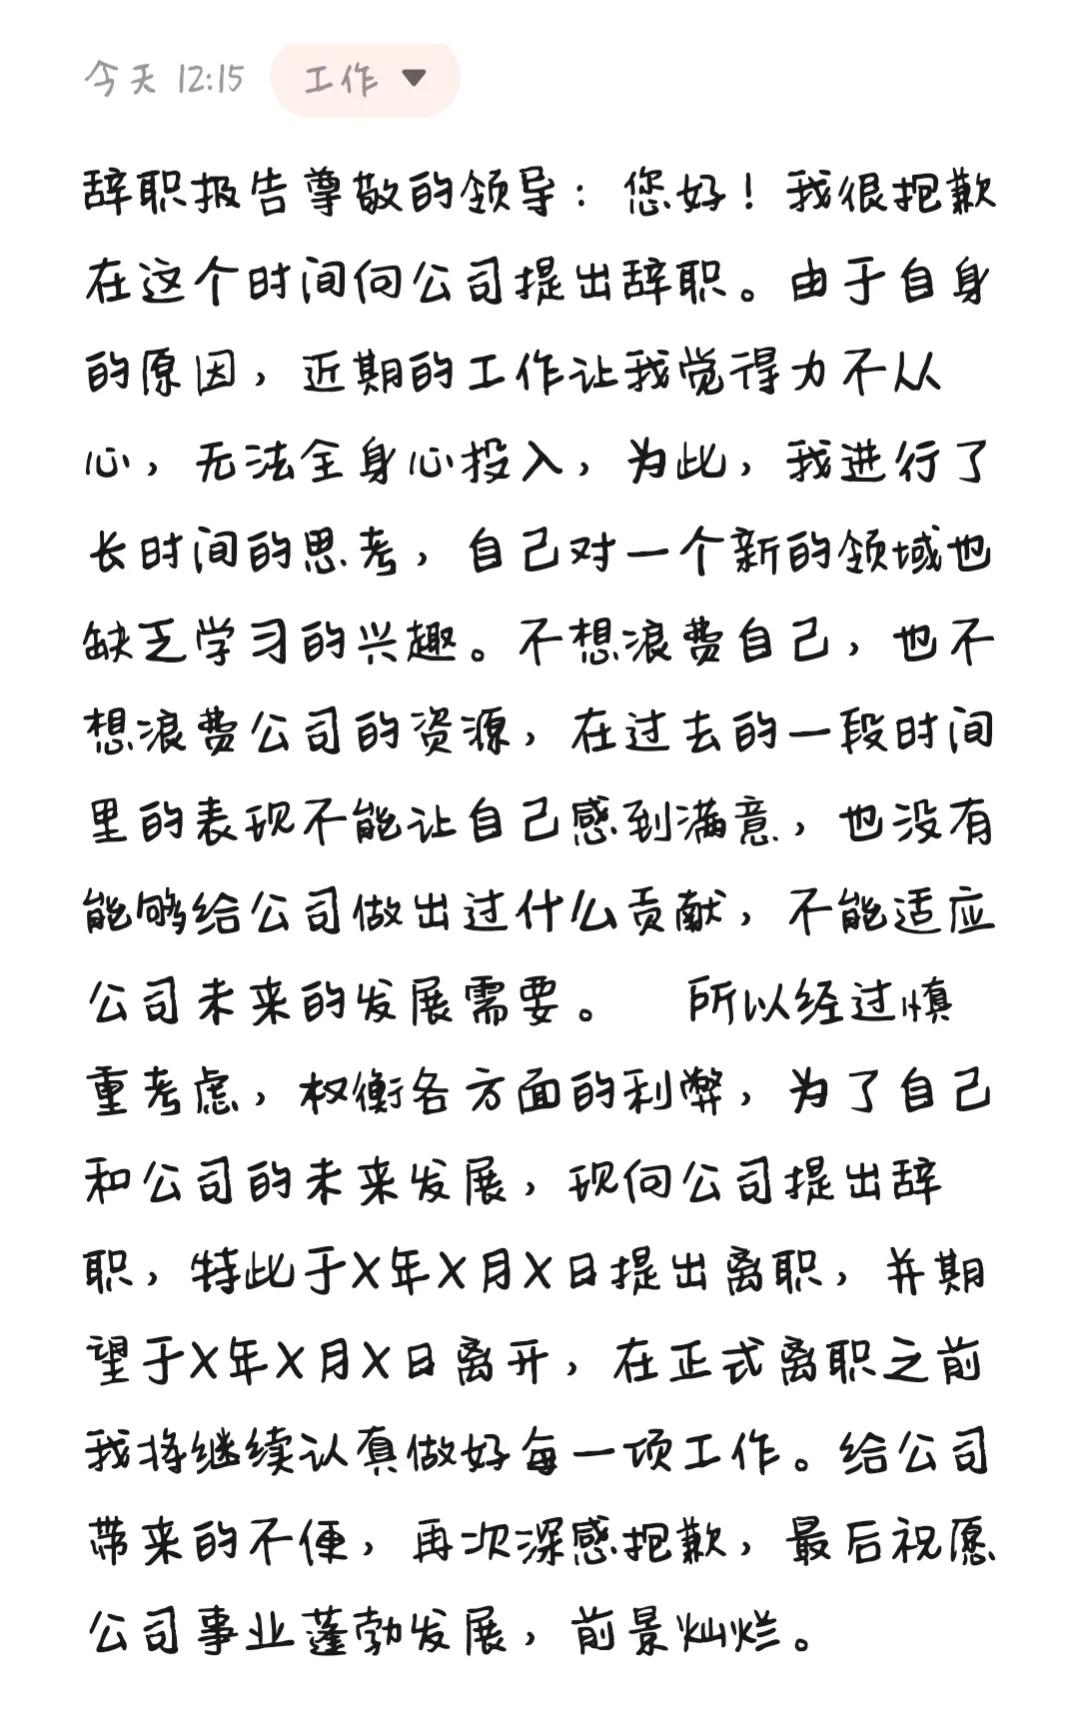 今天 12:15 工作
辞职报告尊敬的领导：您好！我很抱歉
在这个时间向公司提出辞职。由于自身
的原因，近期的工作让我觉得力不从
心，无法全身心投入，为此，我进行了
长时间的思考，自己对一个新的领域也
缺乏学习的兴趣。不想浪费自己，也不
想浪费公司的资源，在过去的一段时间
里的表现不能让自己感到满意，也没有
能够给公司做出过什么贡献，不能适应
公司未来的发展需要。 所以经过慎
重考虑，权衡各方面的利弊，为了自己
和公司的未来发展，现向公司提出辞
职，特此于X年X月X日提出离职，并期
望于X年X月X日离开，在正式离职之前
我将继续认真做好每一项工作。给公司
带来的不便，再次深感抱歉，最后祝愿
公司事业蓬勃发展，前景灿烂。